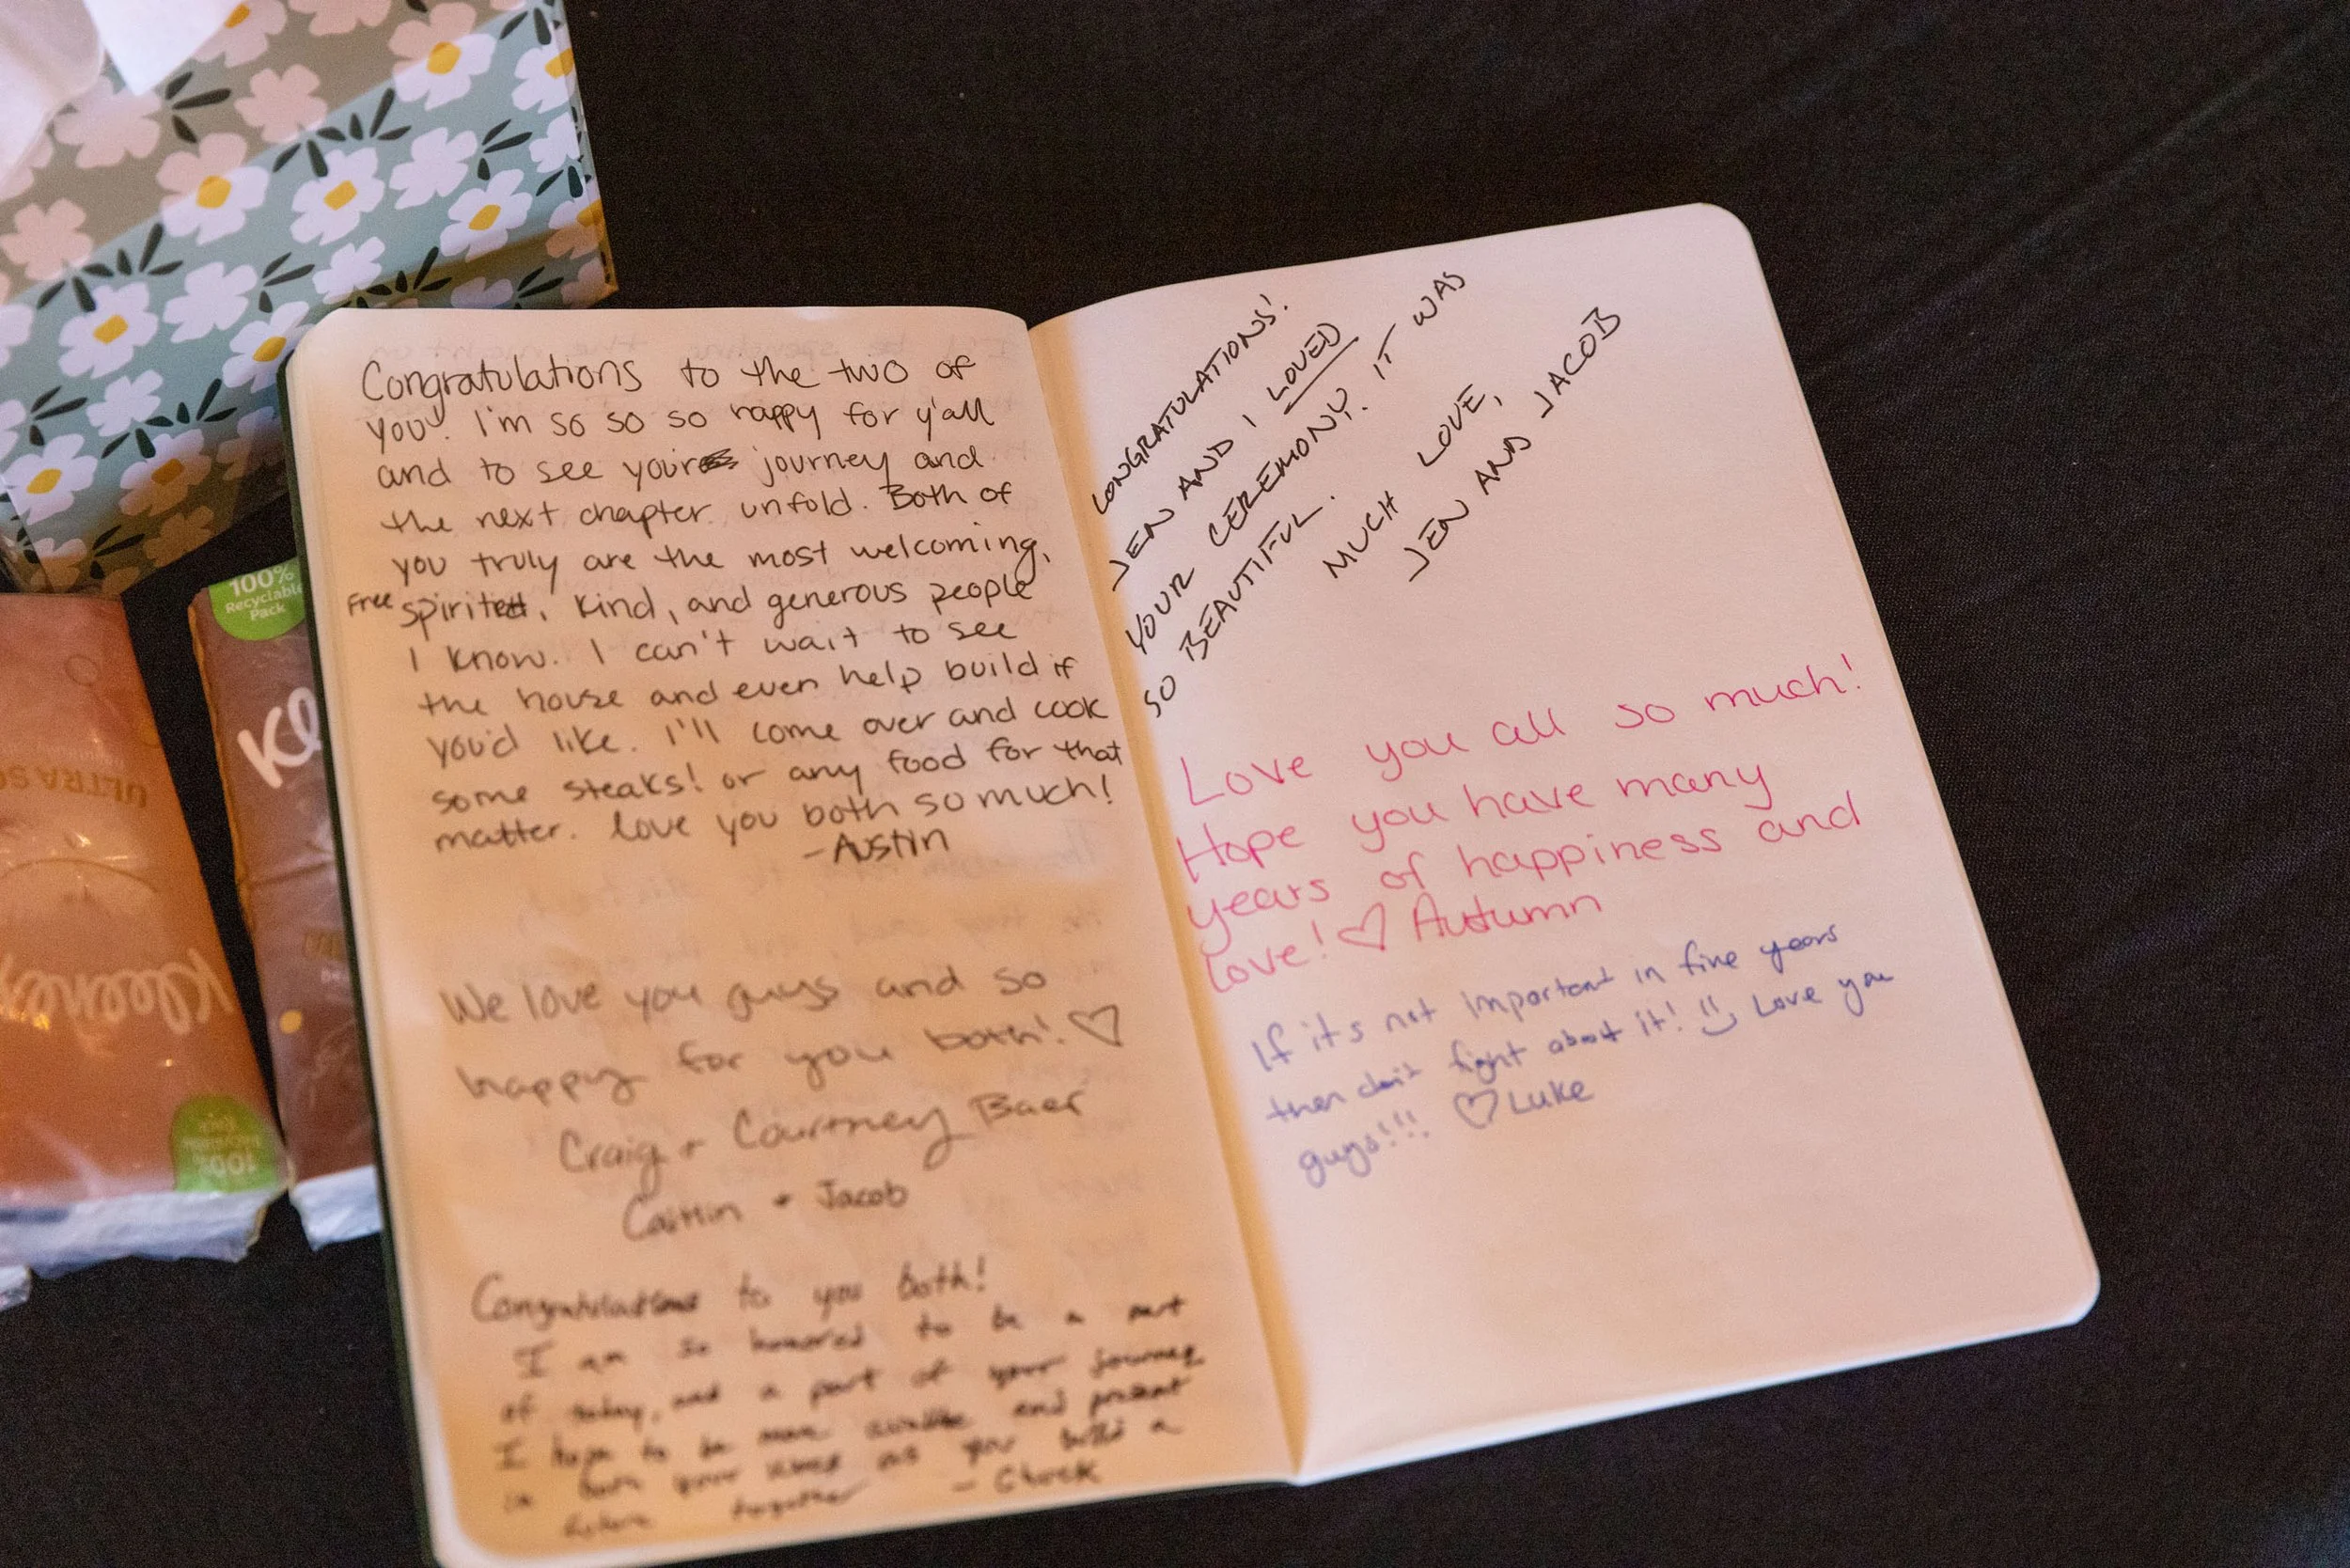 Congratulations to the two of
you! I'm so so so happy for y'all
and to see your journey and
the next chapter unfold. Both of
you truly are the most welcoming,
Free spirited, kind, and generous people
I know. I can't wait to see
the house and even help build if
you'd like. I'll come over and cook
some steaks! or any food for that
matter. love you both so much!
-Austin
We love you guys and so
happy for you both! ♡
Craig + Courtney Baer
Caitlin + Jacob
Congratulations to you both!
I am so honored to be a part
of today, and a part of your journey
I hope to be more available and present
in both your lives as you build a
future together - Chuck
CONGRATULATIONS!
JEN AND I LOVED
YOUR CEREMONY. IT WAS
SO BEAUTIFUL.
MUCH LOVE,
JEN AND JACOB
Love you all so much!
Hope you have many
years of happiness and
love! ♡ Autumn
If it's not important in five years
then don't fight about it! Love you
guys!!! ♡ Luke
100%
Recyclable
Pack
Kl
ULTRA SO
Kleenex
100%